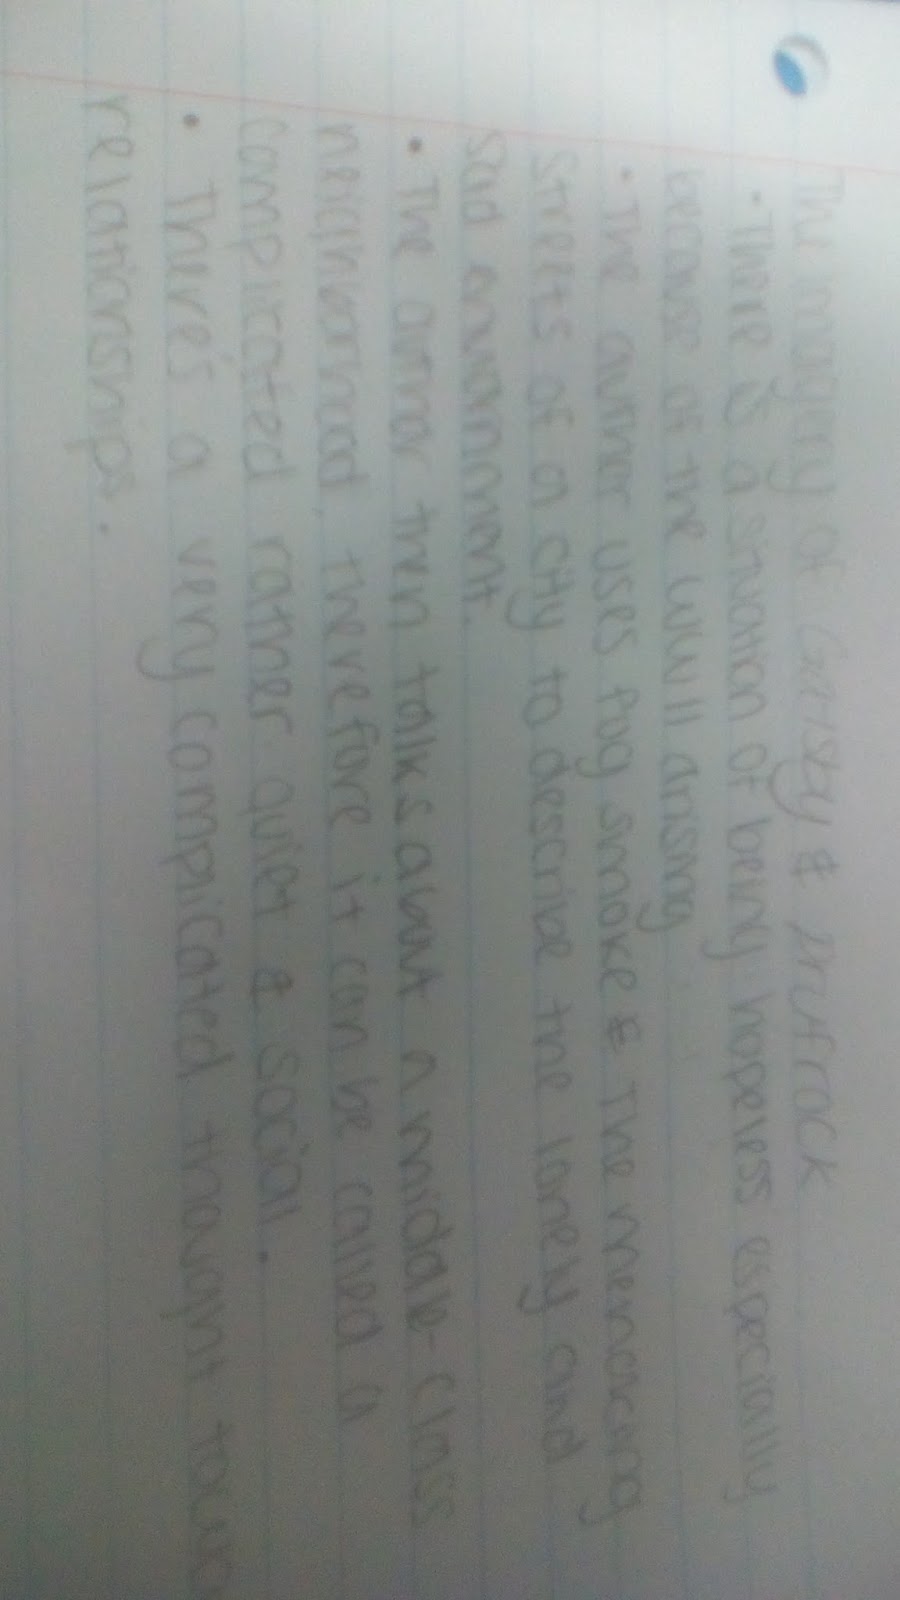 The imagery of Gatsby & Prufrock
• There is a situation of being hopeless especially
because of the WWII arising.
• The author uses fog smoke & The menacing
streets of a city to describe the lonely and
sad environment.
• The author then talks about a middle-class
neighborhood, therefore it can be called a
complicated rather quiet & social.
• There's a very complicated thought
relationships.